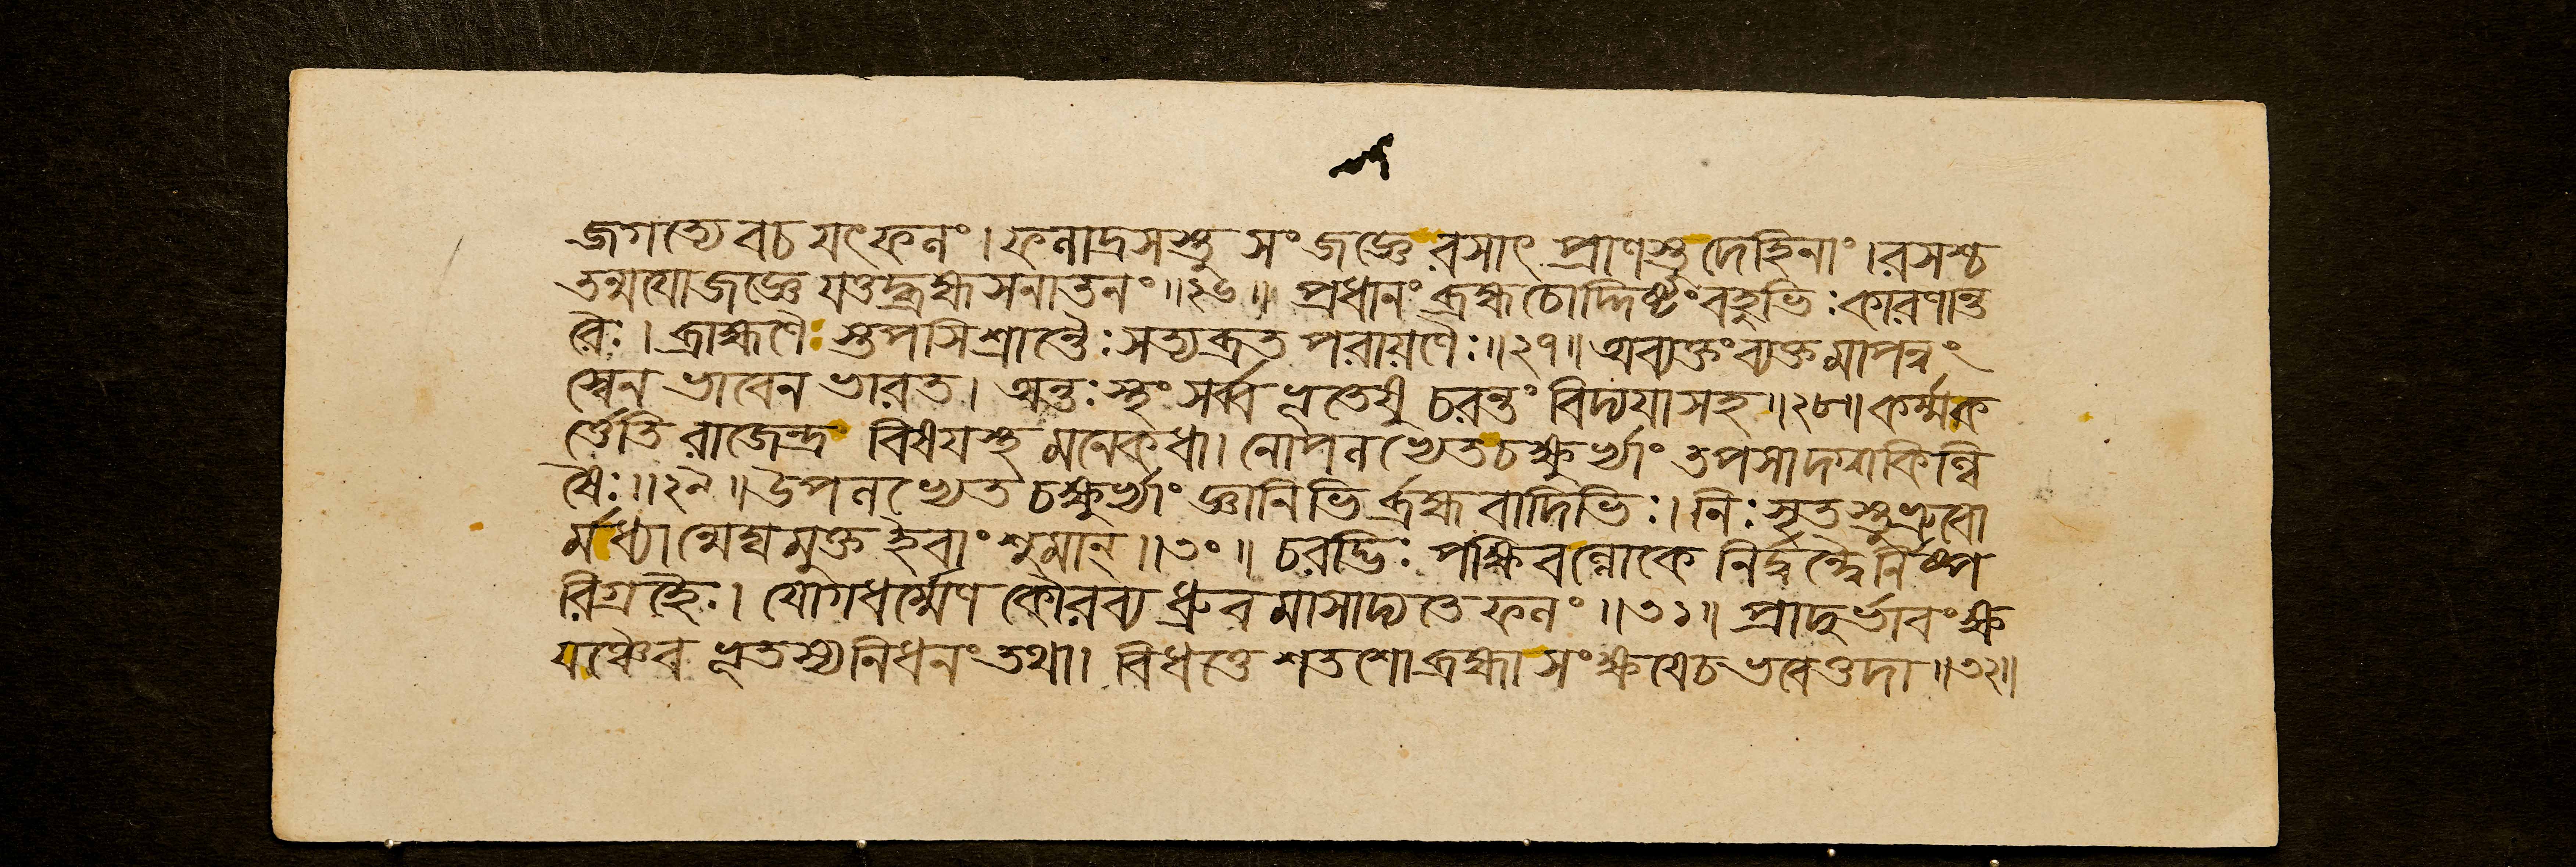 জগত্যেবচ যৎফলং। ফলাদ্রসস্তু সংজজ্ঞে রসাৎ প্রাণস্তু দেহিনাং। রসশ্চ
তন্ময়োজজ্ঞে যত্তদ্ব্রহ্মসনাতনং॥২৬॥ প্রধানং ব্রহ্মচোদ্দিষ্টং বহুভিঃকারণান্ত
রৈঃ। ব্রাহ্মণৈ স্তপসিশ্রান্তৈঃ সত্যব্রত পরায়ণৈঃ॥২৭॥ অব্যক্তং ব্যক্ত মাপন্নং
স্বেন ভাবেন ভারত। অন্তঃস্থং সর্ব্ব ভূতেষু চরন্তং বিদ্যয়াসহ॥২৮॥ কর্ম্মক
র্ত্তেতি রাজেন্দ্র বিষয়স্থ মনেকধা। নোপলভ্যেতচক্ষুর্ভ্যাং তপসাদগ্ধকিল্বি
ষৈঃ॥২৯॥ উপলভ্যেত চক্ষুর্ভ্যাং জ্ঞানিভি র্ব্রহ্মবাদিভিঃ। নিঃসৃতস্তুভ্রুবো
র্মধ্যান্মেঘমুক্ত ইবাংশুমান্॥৩০॥ চরদ্ভিঃ পক্ষিবল্লোকে নির্দ্বন্দ্বৈর্নিষ্প
রিগ্রহৈঃ। যোগধর্ম্মেণ কৌরব্য ধ্রুবমাসাদ্যতে ফলং॥৩১॥ প্রাদুর্ভাবংক্ষ
যঞ্চৈব ভূতস্যনিধনংতথা। বিধত্তে শতশোব্রহ্মা সংক্ষয়েচভবেত্তদা॥৩২॥